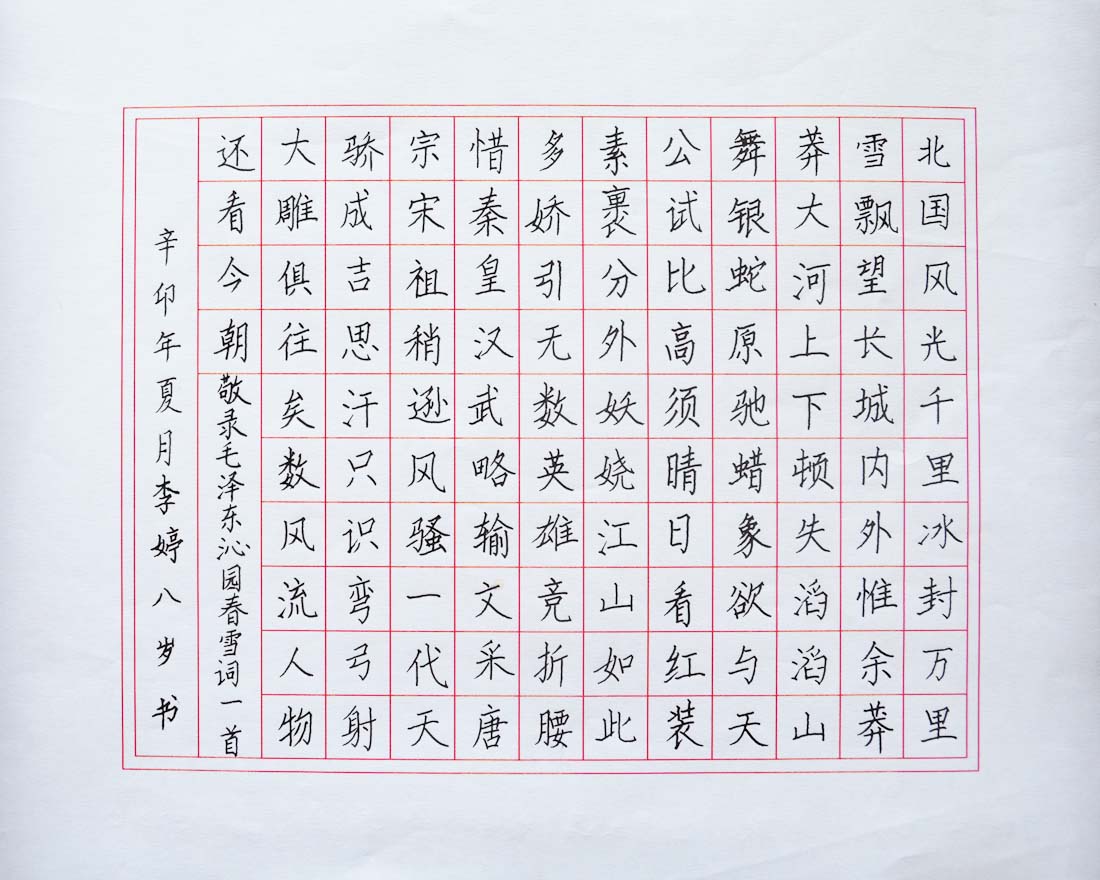 北国风光千里冰封万里
雪飘望长城内外惟余莽
莽大河上下顿失滔滔山
舞银蛇原驰蜡象欲与天
公试比高须晴日看红装
素裹分外妖娆江山如此
多娇引无数英雄竞折腰
惜秦皇汉武略输文采唐
宗宋祖稍逊风骚一代天
骄成吉思汗只识弯弓射
大雕俱往矣数风流人物
还看今朝敬录毛泽东沁园春雪词一首
辛卯年夏月李婷八岁书